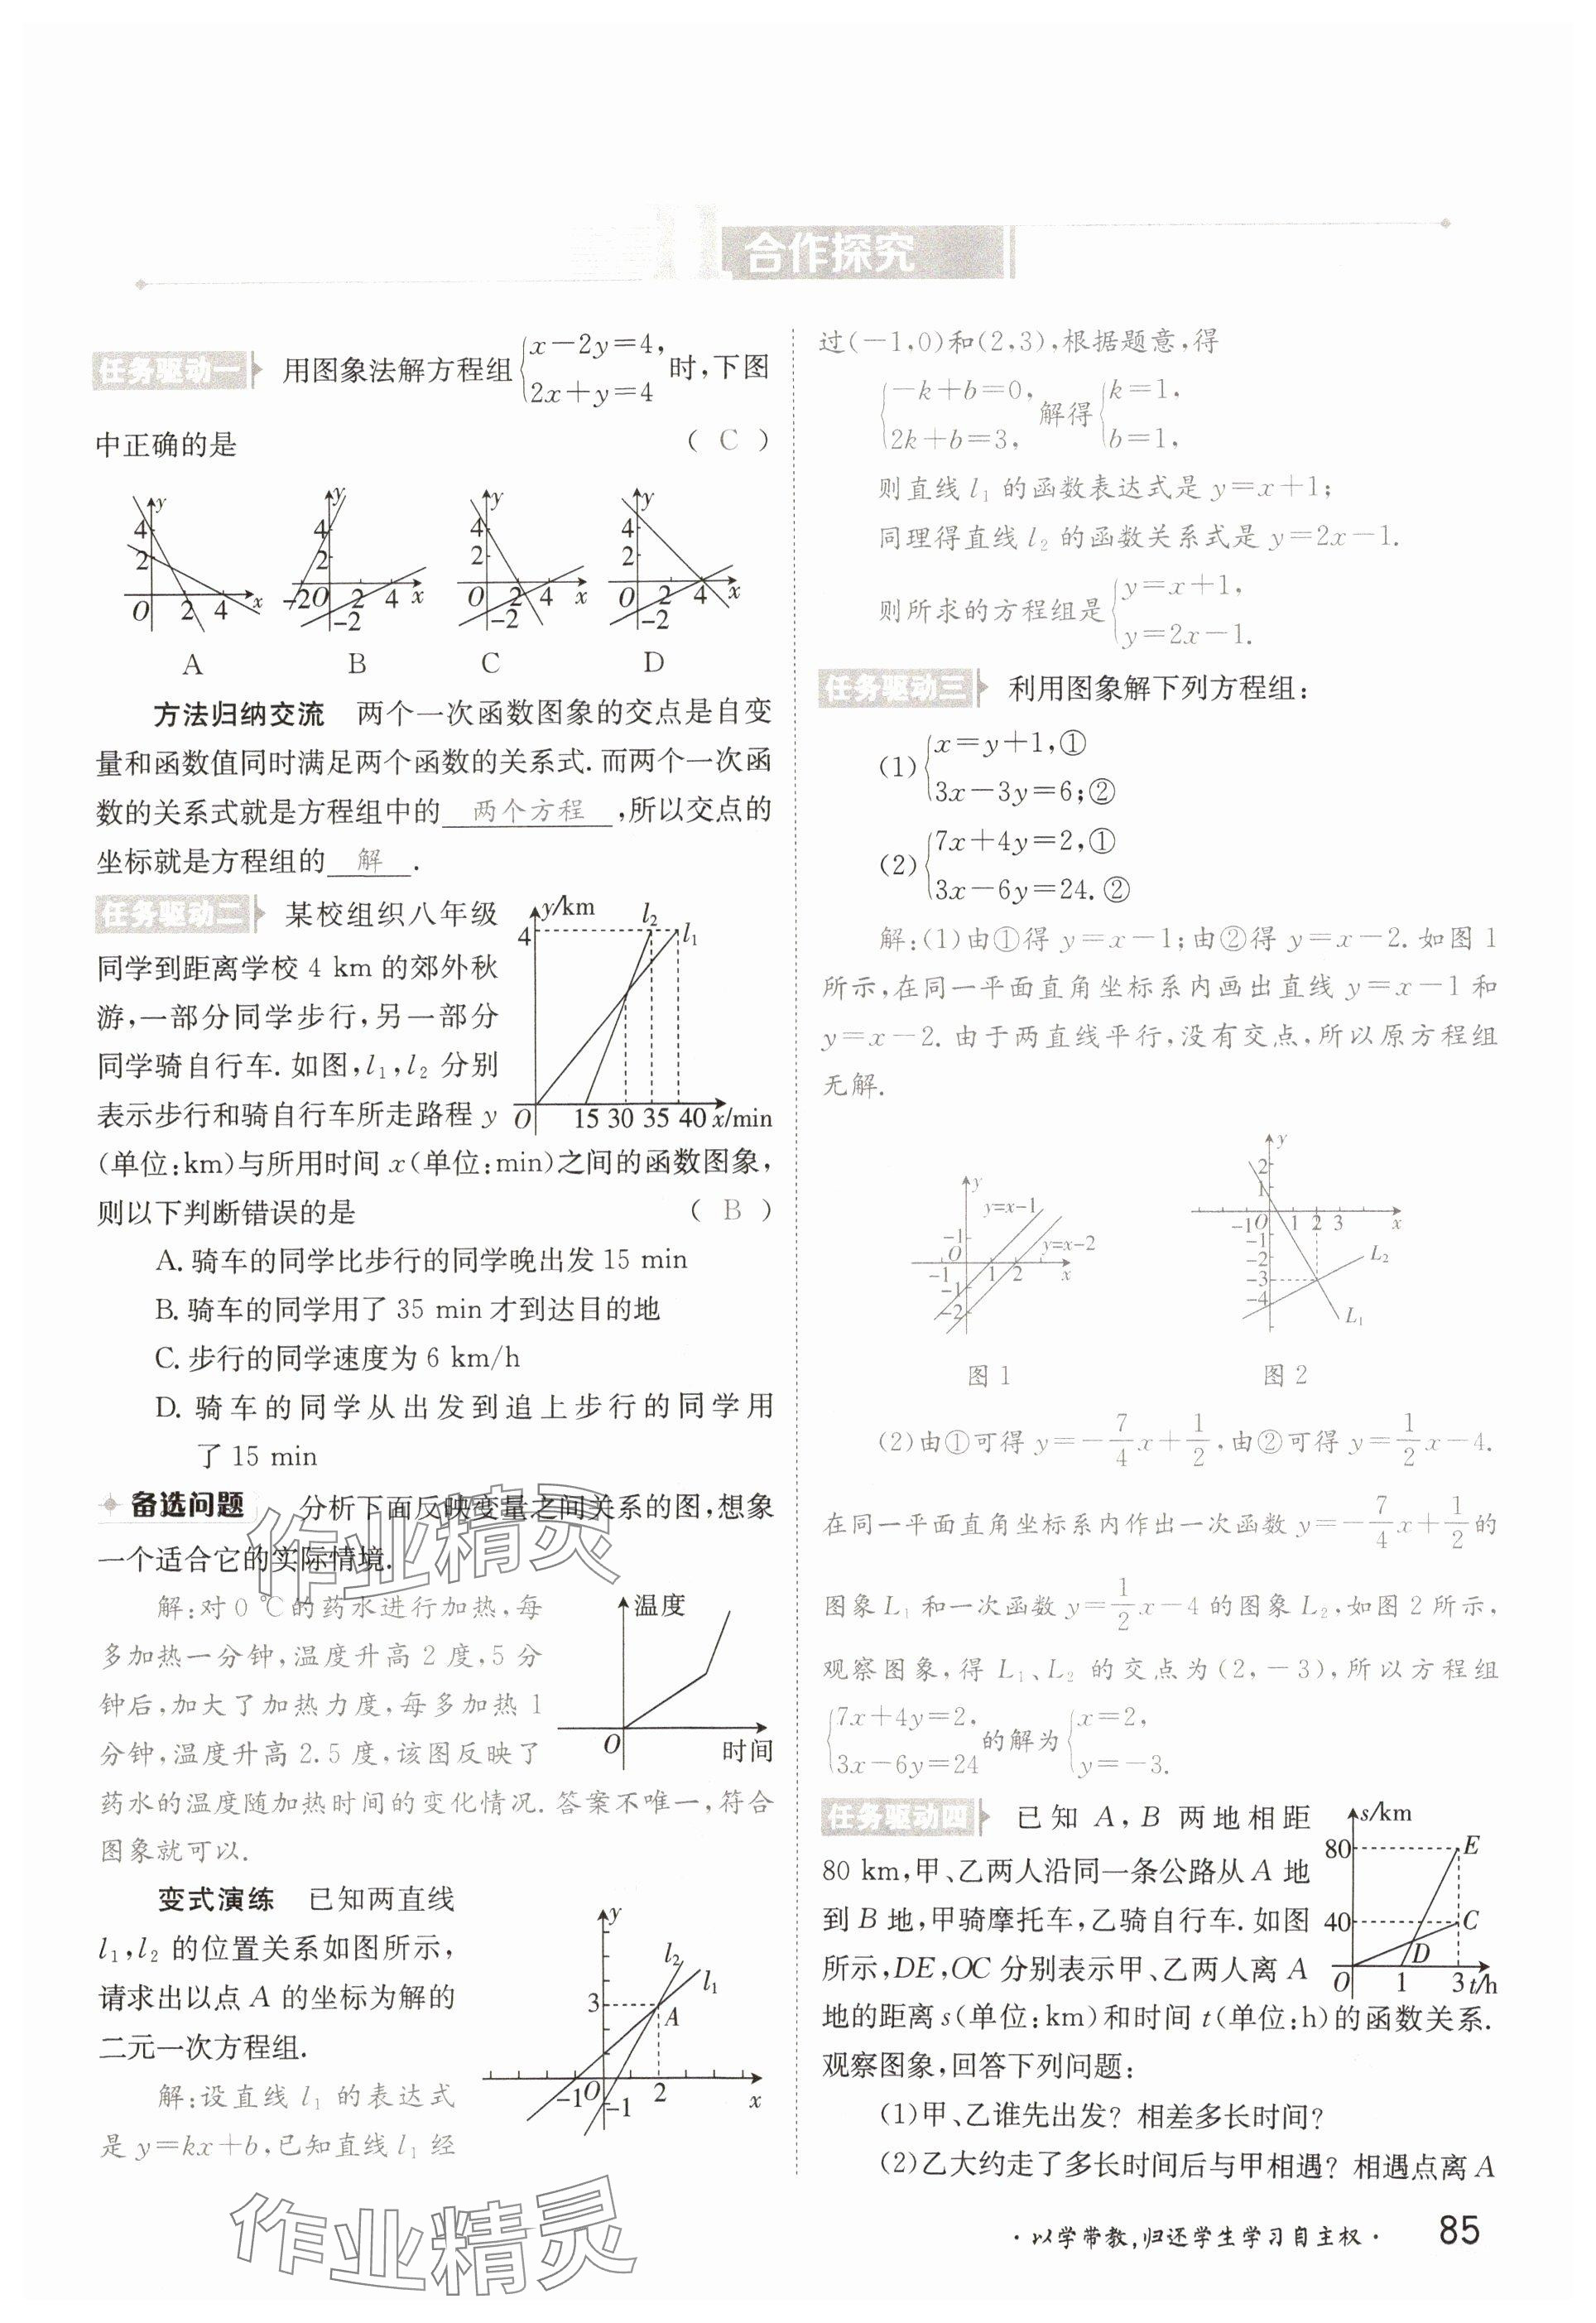 合作探究
任务驱动一 用图象法解方程组{x-2y=4, 2x+y=4 时,下图
中正确的是 ( C )
y 4 2 O 2 4 x
y 4 2 -2 O 2 4 x -2
y 4 2 O 2 4 x -2
y 4 2 O 2 4 x -2
A B C D
方法归纳交流 两个一次函数图象的交点是自变
量和函数值同时满足两个函数的关系式.而两个一次函
数的关系式就是方程组中的 两个方程 ,所以交点的
坐标就是方程组的 解 .
任务驱动二 某校组织八年级
同学到距离学校 4 km 的郊外秋
游,一部分同学步行,另一部分
同学骑自行车.如图,l₁,l₂ 分别
表示步行和骑自行车所走路程 y
(单位:km)与所用时间 x(单位:min)之间的函数图象,
则以下判断错误的是 ( B )
y/km l₂ l₁ 4
O 15 30 35 40 x/min
A. 骑车的同学比步行的同学晚出发 15 min
B. 骑车的同学用了 35 min 才到达目的地
C. 步行的同学速度为 6 km/h
D. 骑车的同学从出发到追上步行的同学用
了 15 min
备选问题 分析下面反映变量之间关系的图,想象
一个适合它的实际情境.
解:对 0 ℃的药水进行加热,每
多加热一分钟,温度升高 2 度,5 分
钟后,加大了加热力度,每多加热 1
分钟,温度升高 2.5 度,该图反映了
药水的温度随加热时间的变化情况.答案不唯一,符合
图象就可以.
温度
O 时间
变式演练 已知两直线
l₁,l₂ 的位置关系如图所示,
请求出以点 A 的坐标为解的
二元一次方程组.
解:设直线 l₁ 的表达式
是 y=kx+b,已知直线 l₁ 经
y l₂ l₁ 3 A
-1 O 2 x -1
过(-1,0)和(2,3),根据题意,得
{-k+b=0, 2k+b=3, 解得{k=1, b=1,
则直线 l₁ 的函数表达式是 y=x+1;
同理得直线 l₂ 的函数关系式是 y=2x-1.
则所求的方程组是{y=x+1, y=2x-1.
任务驱动三 利用图象解下列方程组:
(1){x=y+1,① 3x-3y=6;②
(2){7x+4y=2,① 3x-6y=24.②
解:(1)由①得 y=x-1;由②得 y=x-2.如图 1
所示,在同一平面直角坐标系内画出直线 y=x-1 和
y=x-2.由于两直线平行,没有交点,所以原方程组
无解.
y y=x-1 y=x-2 -1 O -1 1 2 x -1 -2
y 2 1 -1 O 1 2 3 x -1 -2 -3 -4 L₂ L₁
图 1 图 2
(2)由①可得 y=-7/4x+1/2,由②可得 y=1/2x-4.
在同一平面直角坐标系内作出一次函数 y=-7/4x+1/2的
图象 L₁ 和一次函数 y=1/2x-4 的图象 L₂,如图 2 所示,
观察图象,得 L₁、L₂ 的交点为(2,-3),所以方程组
{7x+4y=2, 3x-6y=24 的解为{x=2, y=-3.
任务驱动四 已知 A,B 两地相距
80 km,甲、乙两人沿同一条公路从 A 地
到 B 地,甲骑摩托车,乙骑自行车.如图
所示,DE,OC 分别表示甲、乙两人离 A
地的距离 s(单位:km)和时间 t(单位:h)的函数关系.
观察图象,回答下列问题:
s/km 80 E 40 C D
O 1 3 t/h
(1)甲、乙谁先出发? 相差多长时间?
(2)乙大约走了多长时间后与甲相遇? 相遇点离 A
·以学带教,归还学生学习自主权· 85
作业精灵
作业精灵